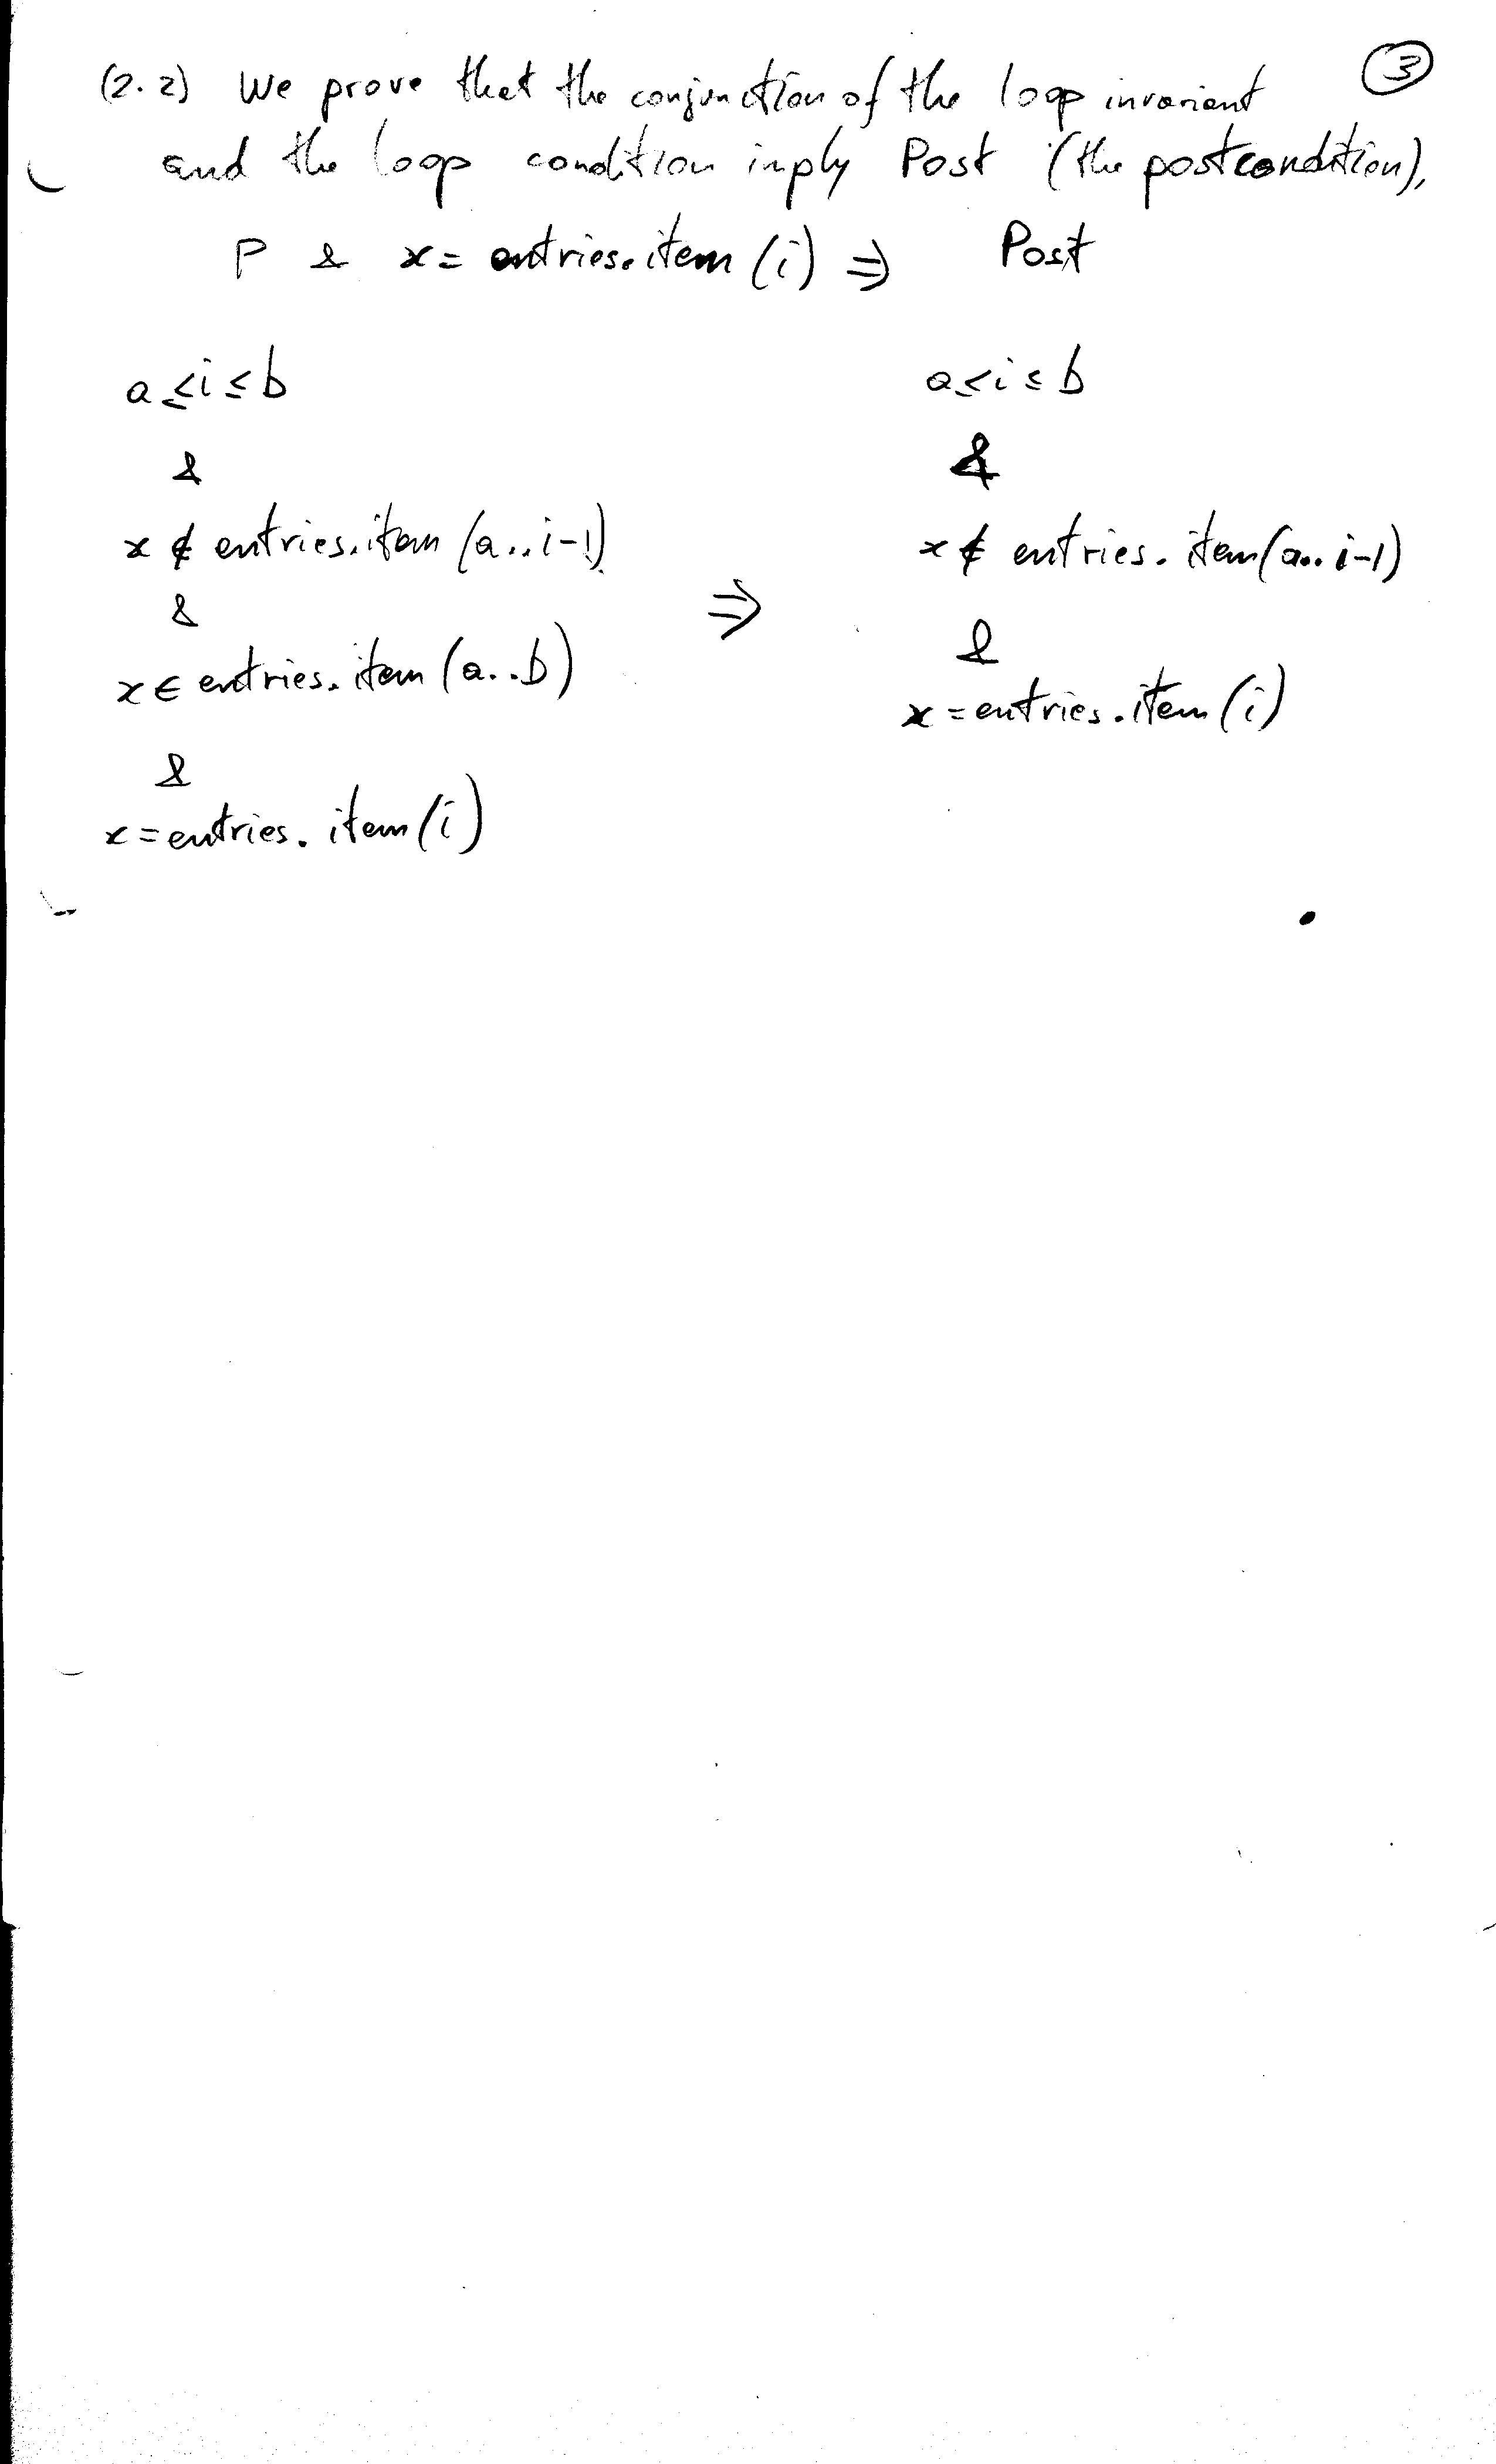 ③
(2.2) We prove that the conjunction of the loop invariant
and the loop condition imply Post (the postcondition),
P & x = entries.item (i) ⇒ Post
a ≤ i ≤ b
&
x ∉ entries.item (a..i-1)
&
x ∈ entries.item (a..b)
&
x = entries.item (i)
⇒
a ≤ i ≤ b
&
x ∉ entries.item (a..i-1)
&
x = entries.item (i)